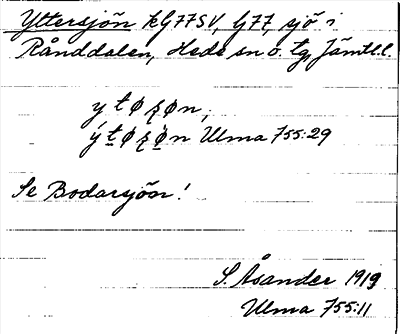 Yttersjön kG77SV, G77, sjö i
Rånddalen, Hede sn o. tg, Jämtl. l.
y t ø ʂ ø n,
ý t ø ʂ ø n Ulma 755:29
Se Bodarsjön!
S. Åsander 1919
Ulma 755:11